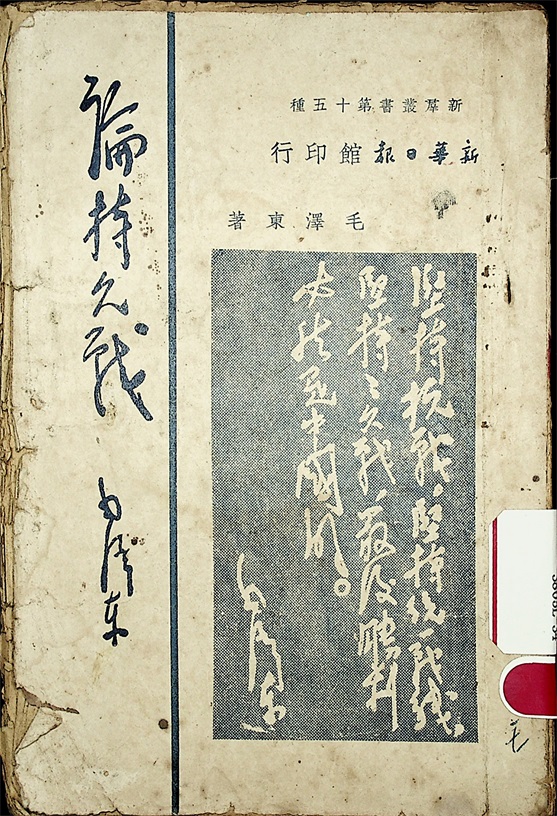 新羣叢書第十五種
新華日報館印行
毛澤東著
堅持抗戰，堅持統一戰綫，
堅持持久戰，最後勝利
必然是中國的。
毛澤东
論持久戰
毛澤东
毛